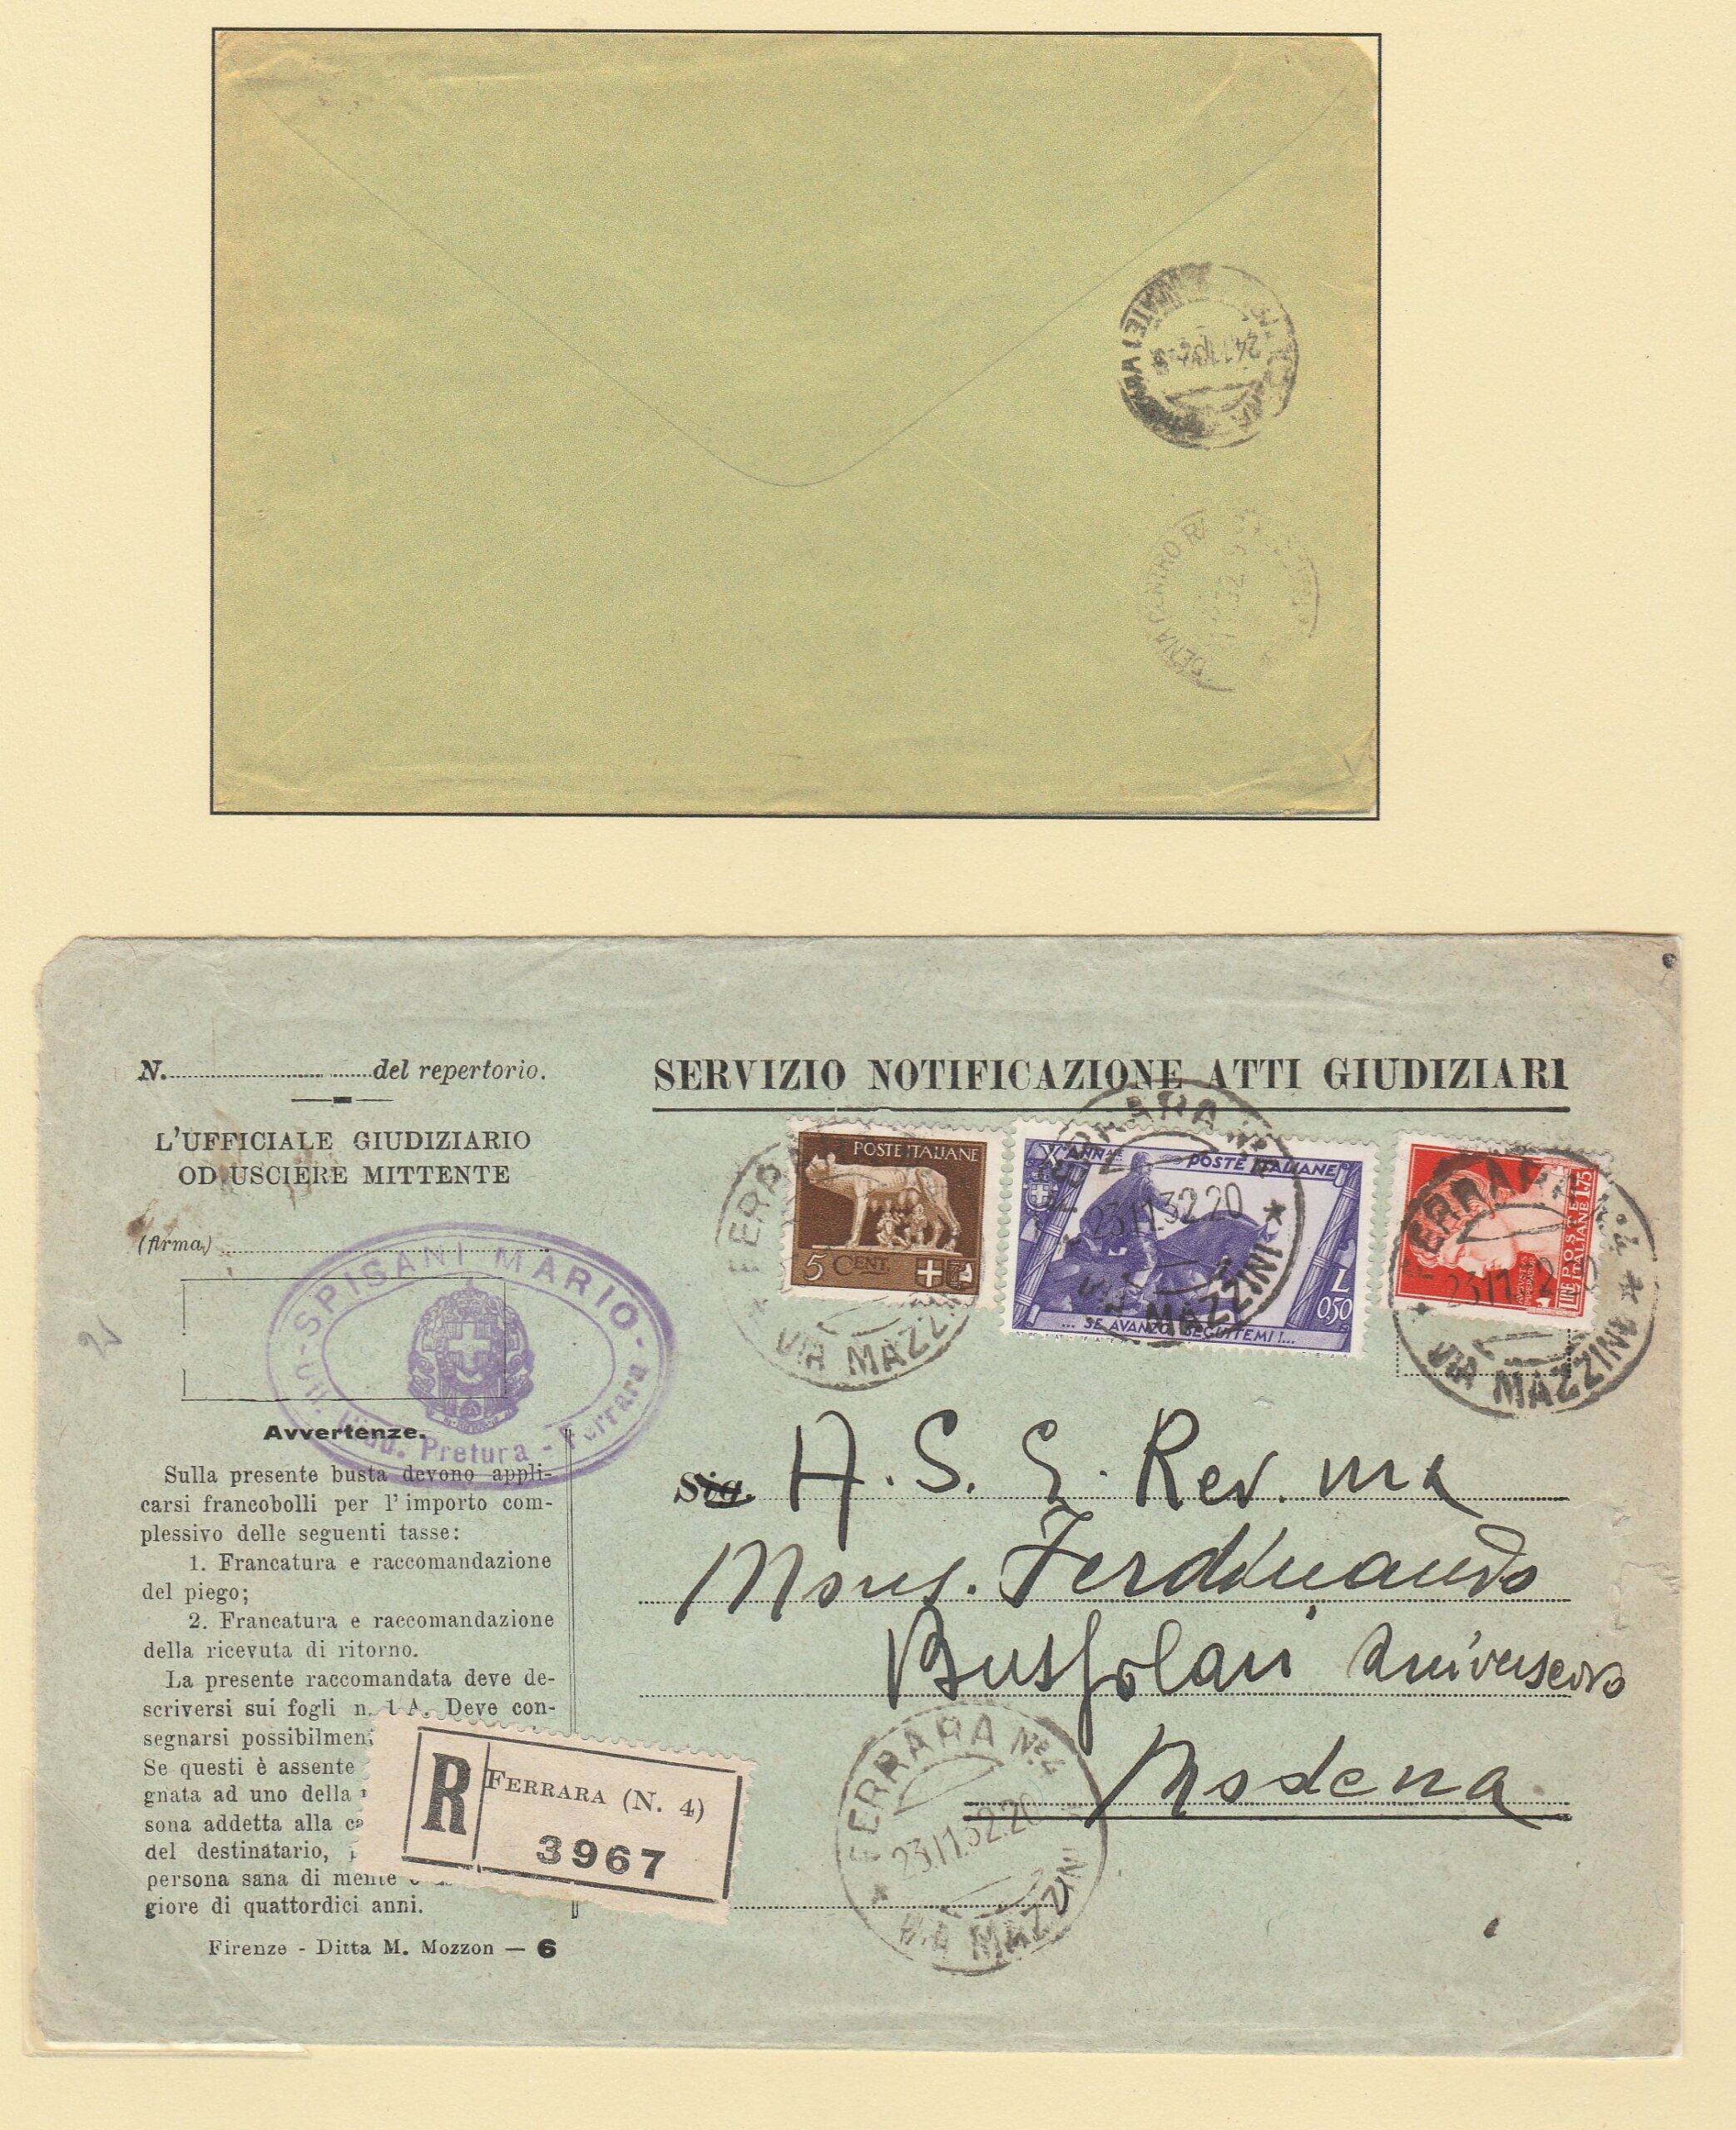 CENTRO
N. del repertorio.
L'UFFICIALE GIUDIZIARIO
OD USCIERE MITTENTE
(firma)
SPISANI MARIO
Pretura - Ferrara
Avvertenze.
Sulla presente busta devono appli-
carsi francobolli per l'importo com-
plessivo delle seguenti tasse:
1. Francatura e raccomandazione
del piego;
2. Francatura e raccomandazione
della ricevuta di ritorno.
La presente raccomandata deve de-
scriversi sui fogli n. 1 A. Deve con-
segnarsi
Se questi è assente
gnata ad uno della
sona addetta alla
del destinatario,
persona sana di mente
giore di quattordici anni.
Firenze - Ditta M. Mozzon — 6
R
FERRARA (N. 4)
3967
SERVIZIO NOTIFICAZIONE ATTI GIUDIZIARI
POSTE ITALIANE
5 CENT.
VIA MAZZINI
X ANN.LE POSTE ITALIANE
L 0,50
... SE AVANZO SEGUITEMI!...
23.11.32.20
VIA MAZZINI
LIRE 1.75
POSTE
ITALIANE
FERRARA N.4
VIA MAZZINI
Sig. A. S. E. Rev.ma
Mons. Ferdinando
Modena
FERRARA N.4
23.11.32.20
VIA MAZZINI